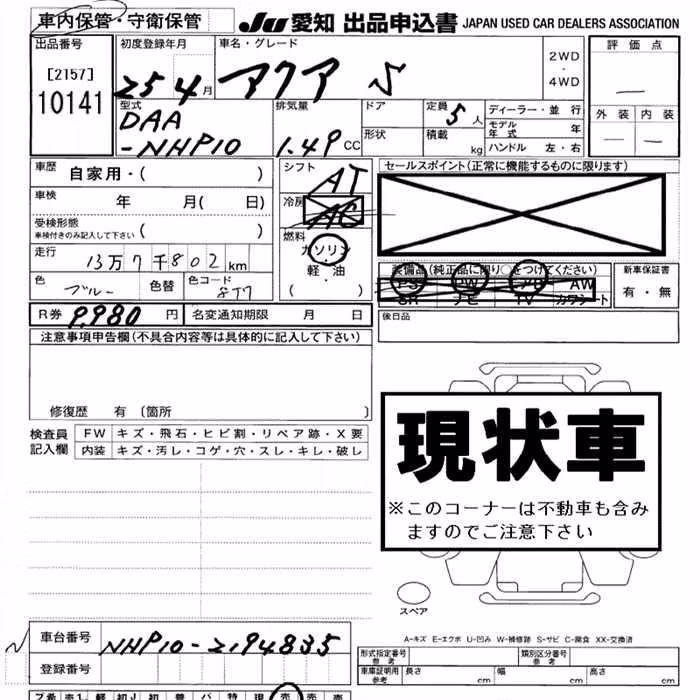 車内保管・守衛保管
JU 愛知 出品申込書 JAPAN USED CAR DEALERS ASSOCIATION
出品番号
[2157]
10141
初度登録年月
25 4 月
車名・グレード
アクア S
2WD
・
4WD
評価点
—
外装 内装
— —
型式
DAA
-NHP10
排気量
1.49 CC
ドア
形状
定員 5 人
積載 kg
ディーラー・並 行
モデル年式 年
ハンドル 左・右
車歴 自家用・( )
車検 年 月( 日)
受検形態
車検付きのみ記入して下さい ( )
走行 13万7千802km
色 ブルー 色替 色コード 8T7
シフト
AT
冷房
AC
燃料
ガソリン
・
軽・油
・
( )
セールスポイント(正常に機能するものに限ります)
装備品(純正品に限り○をつけてください)
PS PW AW
SR ナビ TV カワシート
新車保証書
有・無
R券 9,980 円 名変通知期限 月 日
後日品
注意事項申告欄(不具合内容等は具体的に記入して下さい)
修復歴 有〔箇所 〕
検査員
記入欄
FW キズ・飛石・ヒビ割・リペア跡・X要
内装 キズ・汚レ・コゲ・穴・スレ・キレ・破レ
現状車
※このコーナーは不動車も含み
ますのでご注意下さい
スペア
A-キズ E-エクボ U-凹み W-補修跡 S-サビ C-腐食 XX-交換済
車台番号 NHP10-2194835
登録番号
形式指定番号
参考
類別区分番号
参考
車庫証明用
参考
長さ cm 幅 cm 高さ cm